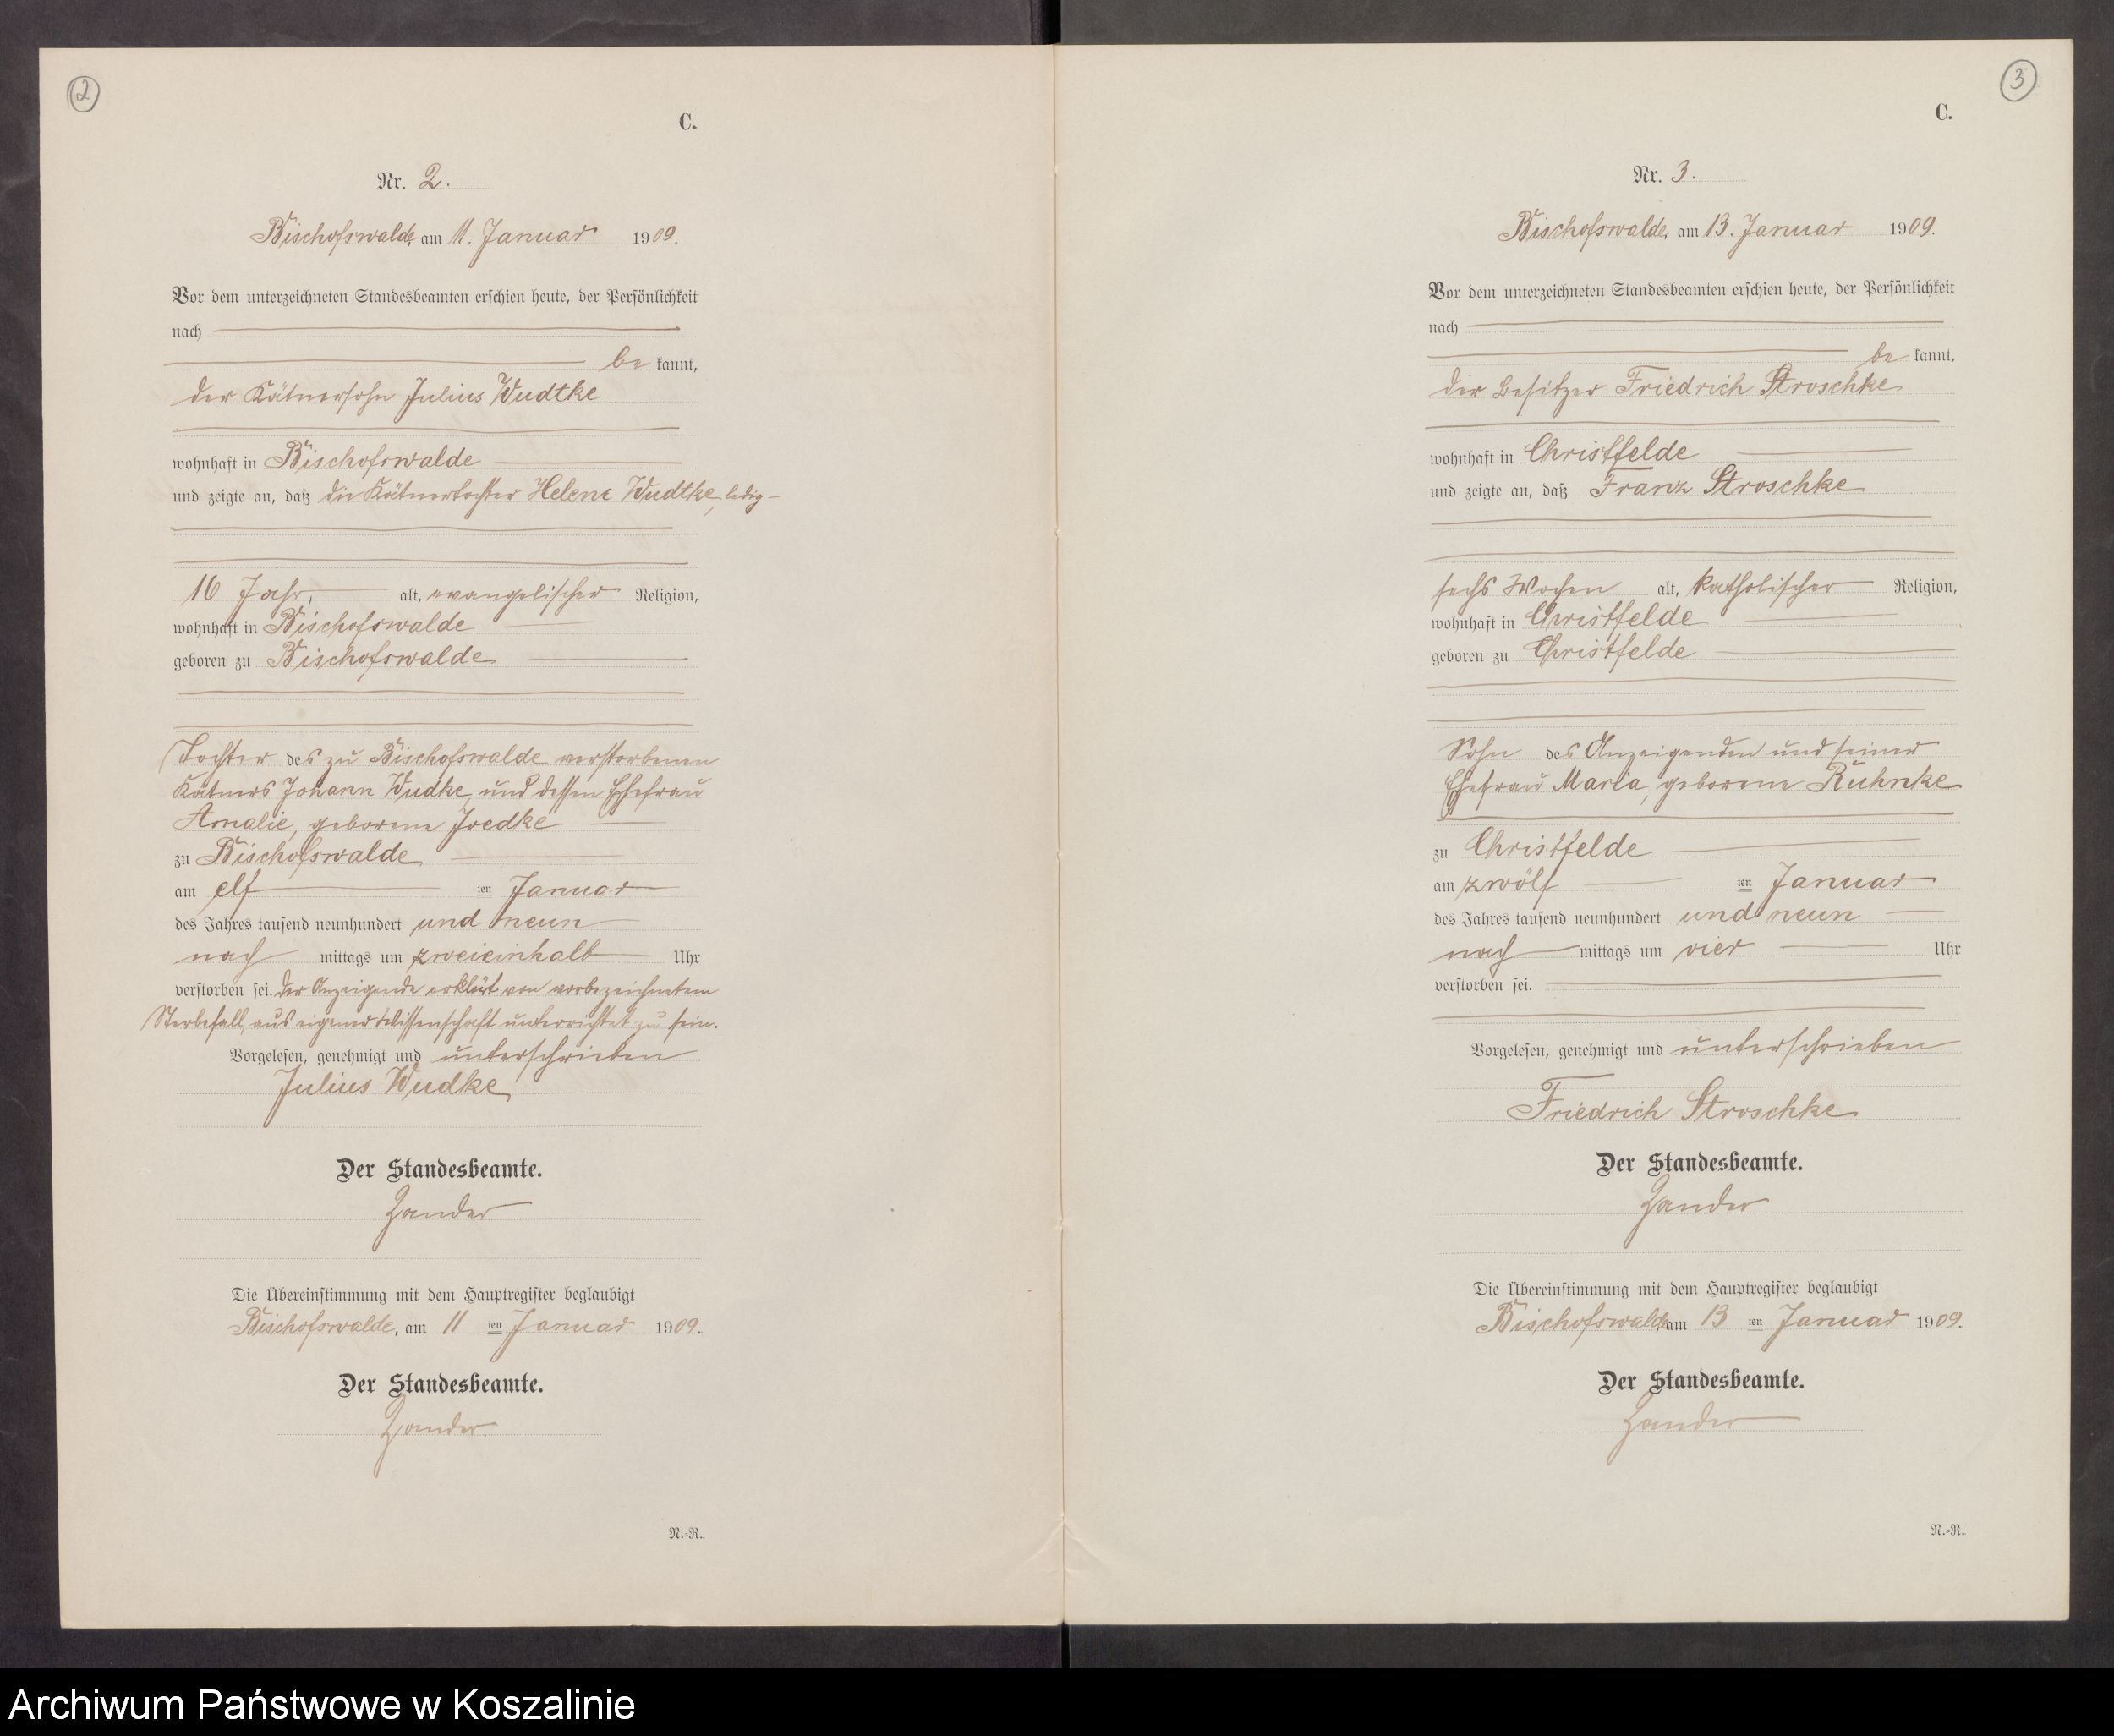 2
C.
Nr. 2.
Bischofswalde, am 11. Januar 1909.
Vor dem unterzeichneten Standesbeamten erschien heute, der Persönlichkeit
nach
be kannt,
der Kätnersohn Julius Wudtke
wohnhaft in Bischofswalde
und zeigte an, daß die Kätnertochter Helene Wudtke, ledig
16 Jahr, alt, evangelischer Religion,
wohnhaft in Bischofswalde
geboren zu Bischofswalde
Tochter des zu Bischofswalde verstorbenen
Kätners Johann Wudke und dessen Ehefrau
Amalie, geborene Jredke
zu Bischofswalde
am elf ten Januar
des Jahres tausend neunhundert und neun
nach mittags um zweieinhalb Uhr
verstorben sei. Der Anzeigende erklärt von vorbezeichnetem
Sterbefall aus eigener Wissenschaft unterrichtet zu sein.
Vorgelesen, genehmigt und unterschrieben
Julius Wudke
Der Standesbeamte.
Zander
Die Übereinstimmung mit dem Hauptregister beglaubigt
Bischofswalde, am 11 ten Januar 1909.
Der Standesbeamte.
Zander
N.-R.
3
C.
Nr. 3.
Bischofswalde, am 13. Januar 1909.
Vor dem unterzeichneten Standesbeamten erschien heute, der Persönlichkeit
nach
be kannt,
der Besitzer Friedrich Stroschke
wohnhaft in Christfelde
und zeigte an, daß Franz Stroschke
sechs Wochen alt, katholischer Religion,
wohnhaft in Christfelde
geboren zu Christfelde
Sohn des Anzeigenden und seiner
Ehefrau Maria, geborene Ruhnke
zu Christfelde
am zwölf ten Januar
des Jahres tausend neunhundert und neun
nach mittags um vier Uhr
verstorben sei.
Vorgelesen, genehmigt und unterschrieben
Friedrich Stroschke
Der Standesbeamte.
Zander
Die Übereinstimmung mit dem Hauptregister beglaubigt
Bischofswalde, am 13 ten Januar 1909.
Der Standesbeamte.
Zander
N.-R.
Archiwum Państwowe w Koszalinie